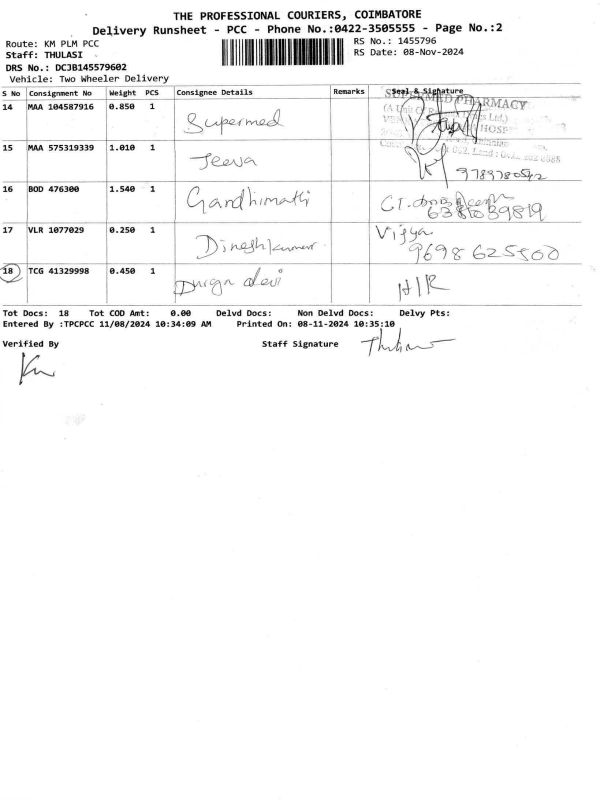 THE PROFESSIONAL COURIERS, COIMBATORE
Delivery Runsheet - PCC - Phone No.:0422-3505555 - Page No.:2
Route: KM PLM PCC RS No.: 1455796
Staff: THULASI RS Date: 08-Nov-2024
DRS No.: DCJB145579602
Vehicle: Two Wheeler Delivery
S No Consignment No Weight PCS Consignee Details Remarks Seal & Signature
14 MAA 104587916 0.850 1 Supermed SUPERMED PHARMACY
15 MAA 575319339 1.010 1 Jeeva
16 BOD 476300 1.540 1 Gandhimathi
17 VLR 1077029 0.250 1 Dineshkumar Vijya
9698625500
18 TCG 41329998 0.450 1 Durga devi H/R
Tot Docs: 18 Tot COD Amt: 0.00 Delvd Docs: Non Delvd Docs: Delvy Pts:
Entered By :TPCPCC 11/08/2024 10:34:09 AM Printed On: 08-11-2024 10:35:10
Verified By Staff Signature